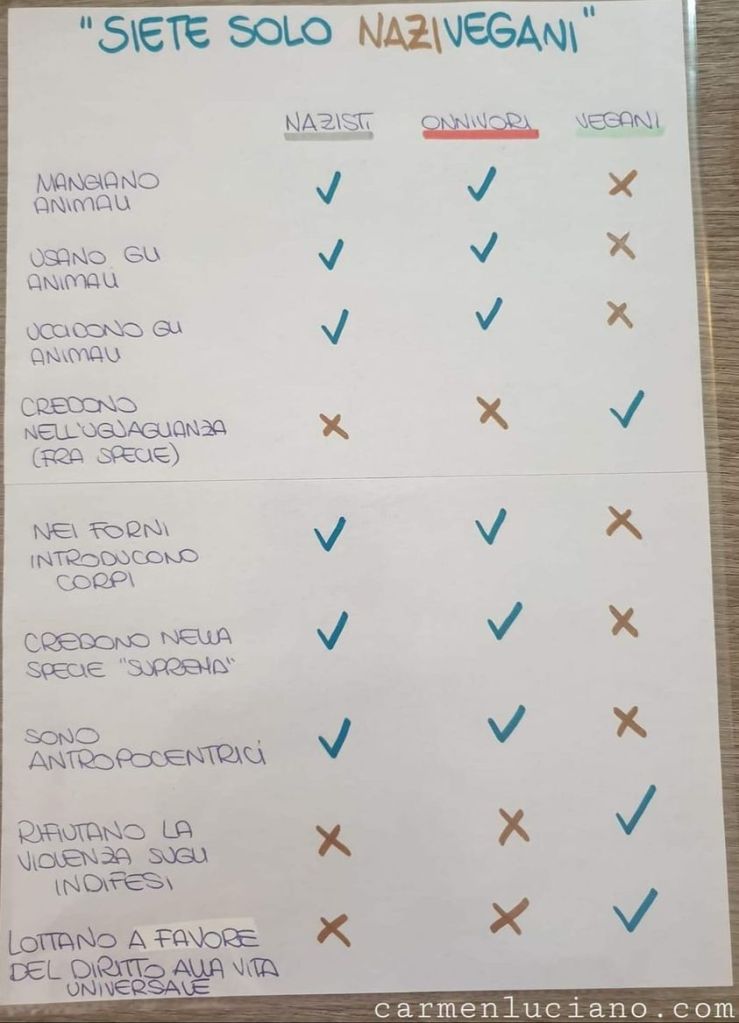 "SIETE SOLO NAZIVEGANI"
NAZISTI ONNIVORI VEGANI
MANGIANO
ANIMALI
USANO GLI
ANIMALI
UCCIDONO GLI
ANIMALI
CREDONO
NELL'UGUAGLIANZA
(FRA SPECIE)
NEI FORNI
INTRODUCONO
CORPI
CREDONO NELLA
SPECIE "SUPREMA"
SONO
ANTROPOCENTRICI
RIFIUTANO LA
VIOLENZA SUGLI
INDIFESI
LOTTANO A FAVORE
DEL DIRITTO ALLA VITA
UNIVERSALE
carmenluciano.com